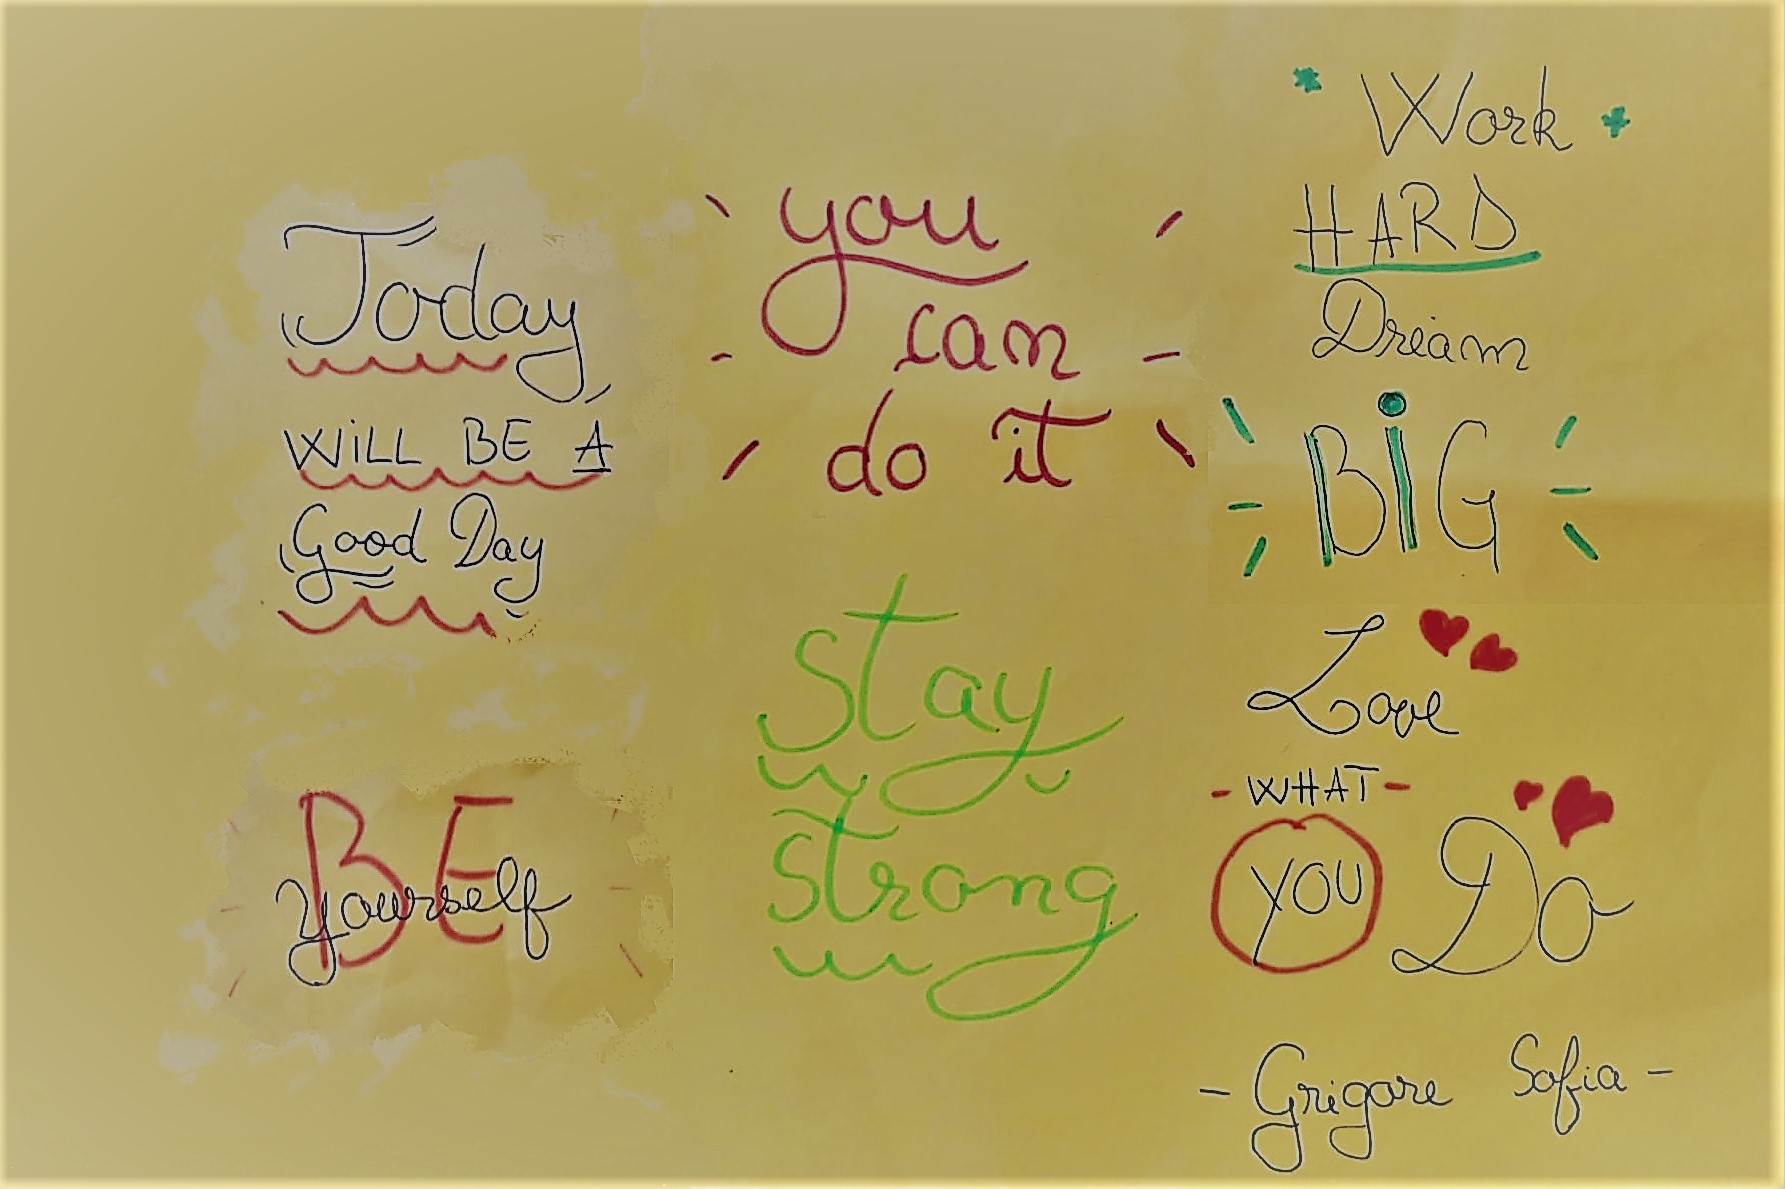 Today
WiLL BE A
Good Day
BE
Yourself
you
can
do it
Stay
Strong
Work
HARD
Dream
BiG
Love
- WHAT -
YOU Do
- Grigore Sofia -